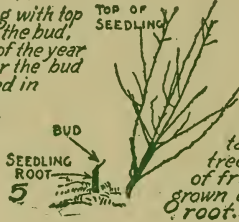 g with top
the bud,
of the year
r the bud
ed in
TOP OF
SEEDLING
BUD
SEEDLING
ROOT
5
to
tree
of fr
grown
root